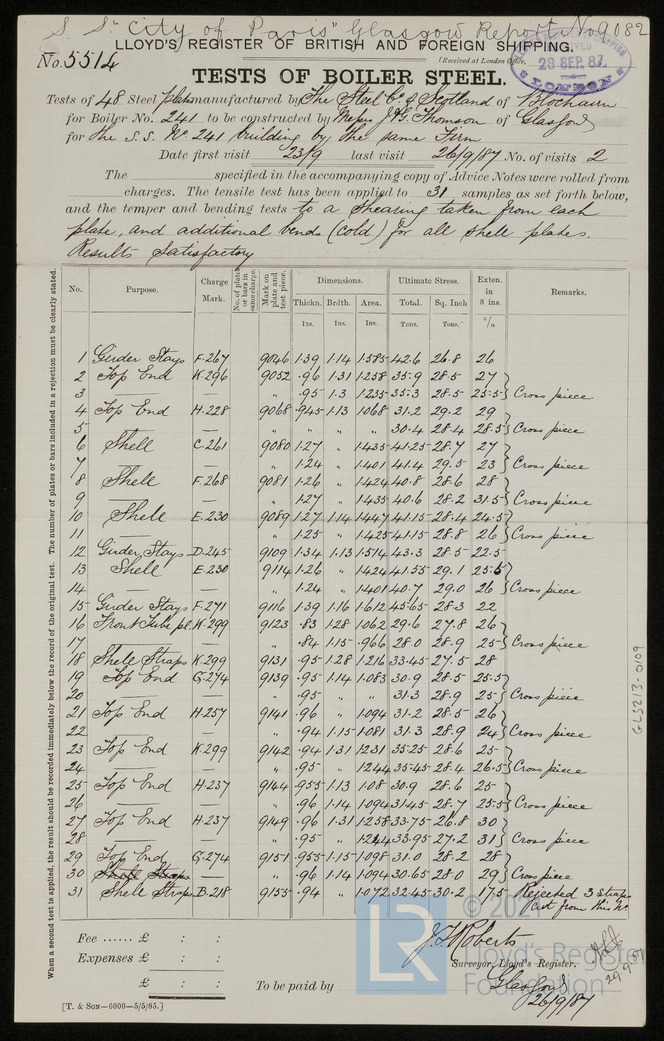 S. S. "City of Paris" Glasgow Report No 9082
LLOYD'S REGISTER OF BRITISH AND FOREIGN SHIPPING.
No. 5514
(Received at London Office,
28 SEP. 87
LONDON
TESTS OF BOILER STEEL.
Tests of 48 Steel plates manufactured by The Steel Co. of Scotland of Blochairn
for Boiler No. 241 to be constructed by Messrs J & G. Thomson of Glasgow
for the S. S. No. 241 building by the same Firm
Date first visit 23/9 last visit 26/9/87 No. of visits 2
The specified in the accompanying copy of Advice Notes were rolled from
charges. The tensile test has been applied to 31 samples as set forth below,
and the temper and bending tests to a shearing taken from each
plate, and additional bends (cold) for all shell plates.
Results Satisfactory
No. Purpose. Charge Mark. No. of plates or bars in same charge. Mark on plate and test piece. Dimensions. Ultimate Stress. Exten. in 8 ins. Remarks.
Thickn. Brdth. Area. Total. Sq. Inch
Ins. Ins. Ins. Tons. Tons. %
1 Girder Stays F.267 9046 1.39 1.14 1.585 42.6 26.8 26
2 Top End K.296 9052 .96 1.31 1.258 35.9 28.5 27
3 — — " .95 1.3 1.235 35.3 28.5 25.5 } Cross piece
4 Top End H.228 9068 .945 1.13 1.068 31.2 29.2 29
5 — — " " " " 30.4 28.4 28.5 } Cross piece
6 Shell C.261 9080 1.27 " 1.435 41.25 28.7 27
7 — — " 1.24 " 1.401 41.4 29.5 23 } Cross piece
8 Shell F.268 9081 1.26 " 1.424 40.8 28.6 28
9 — — " 1.27 " 1.435 40.6 28.2 31.5 } Cross piece
10 Shell E.230 9089 1.27 1.14 1.447 41.15 28.4 24.5
11 — — " 1.25 " 1.425 41.15 28.8 26 } Cross piece
12 Girder Stays D.245 9109 1.34 1.13 1.514 43.3 28.5 22.5
13 Shell E.230 9114 1.26 " 1.424 41.55 29.1 25.5
14 — — " 1.24 " 1.401 40.7 29.0 26 } Cross piece
15 Girder Stays F.271 9116 1.39 1.16 1.612 45.65 28.3 22
16 Front Tube pl. K.299 9123 .83 1.28 1.062 29.6 27.8 26
17 — — " .84 1.15 .966 28.0 28.9 25 } Cross piece
18 Shell Straps K.299 9131 .95 1.28 1.216 33.45 27.5 28
19 Top End G.274 9139 .95 1.14 1.083 30.9 28.5 25.5
20 — — " .95 " " 31.3 28.9 25 } Cross piece
21 Top End H.257 9141 .96 " 1.094 31.2 28.5 26
22 — — " .94 1.15 1.081 31.3 28.9 24 } Cross piece
23 Top End K.299 9142 .94 1.31 1.231 35.25 28.6 25
24 — — " .95 " 1.244 35.45 28.4 26.5 } Cross piece
25 Top End H.237 9144 .955 1.13 1.08 30.9 28.6 25
26 — — " .96 1.14 1.094 31.45 28.7 25.5 } Cross piece
27 Top End H.237 9149 .96 1.31 1.258 33.75 26.8 30
28 — — " .95 " 1.244 33.95 27.2 31 } Cross piece
29 Top End G.274 9151 .955 1.15 1.098 31.0 28.2 28
30 Shell Straps — " .96 1.14 1.094 30.65 28.0 29 } Cross piece
31 Shell Straps B.218 9155 .94 " 1.072 32.45 30.2 17.5 Rejected 3 straps
cut from this No.
When a second test is applied, the result should be recorded immediately below the record of the original test. The number of plates or bars included in a rejection must be clearly stated.
GLS213-0109
Fee ...... £ : :
Expenses £ : :
£ : :
To be paid by
J. F. Roberts
Surveyor, Lloyd's Register.
Glasgow
26/9/87
29.9.87
[T. & Son—6000—5/5/85.]
LR
Lloyd's Register
Foundation